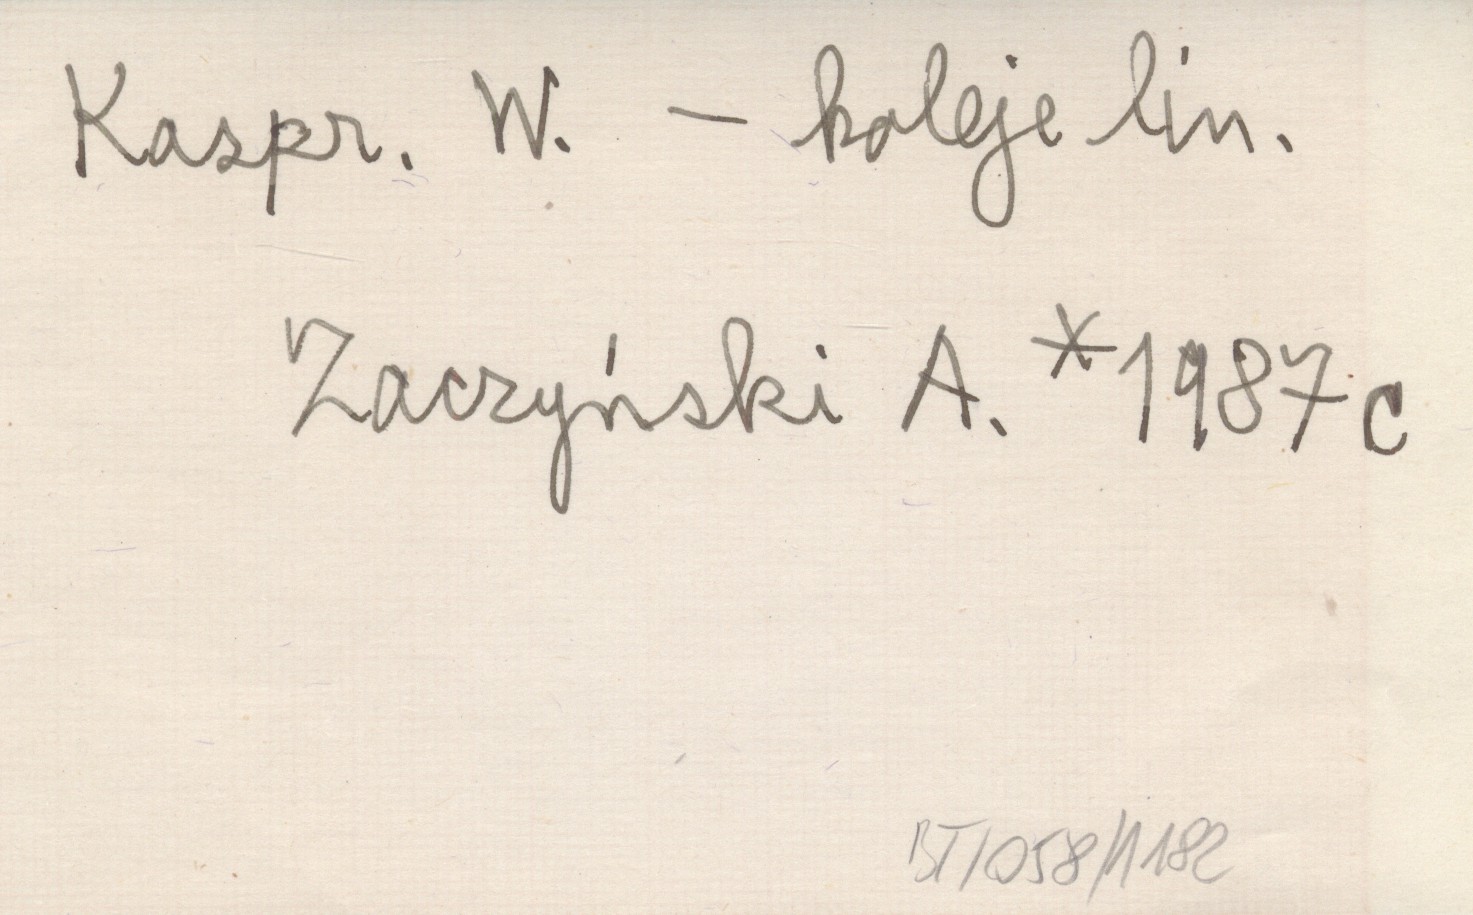 Kaspr. W. – koleje lin.
Zaczyński A. *1987c
BT/058/1182